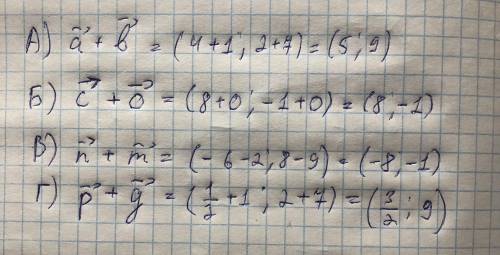 А) a⃗ + b⃗ = (4+1; 2+7) = (5; 9)
Б) c⃗ + o⃗ = (8+0; -1+0) = (8; -1)
В) n⃗ + m⃗ = (-6-2; 8-9) = (-8; -1)
Г) p⃗ + g⃗ = (1/2 + 1; 2+7) = (3/2; 9)